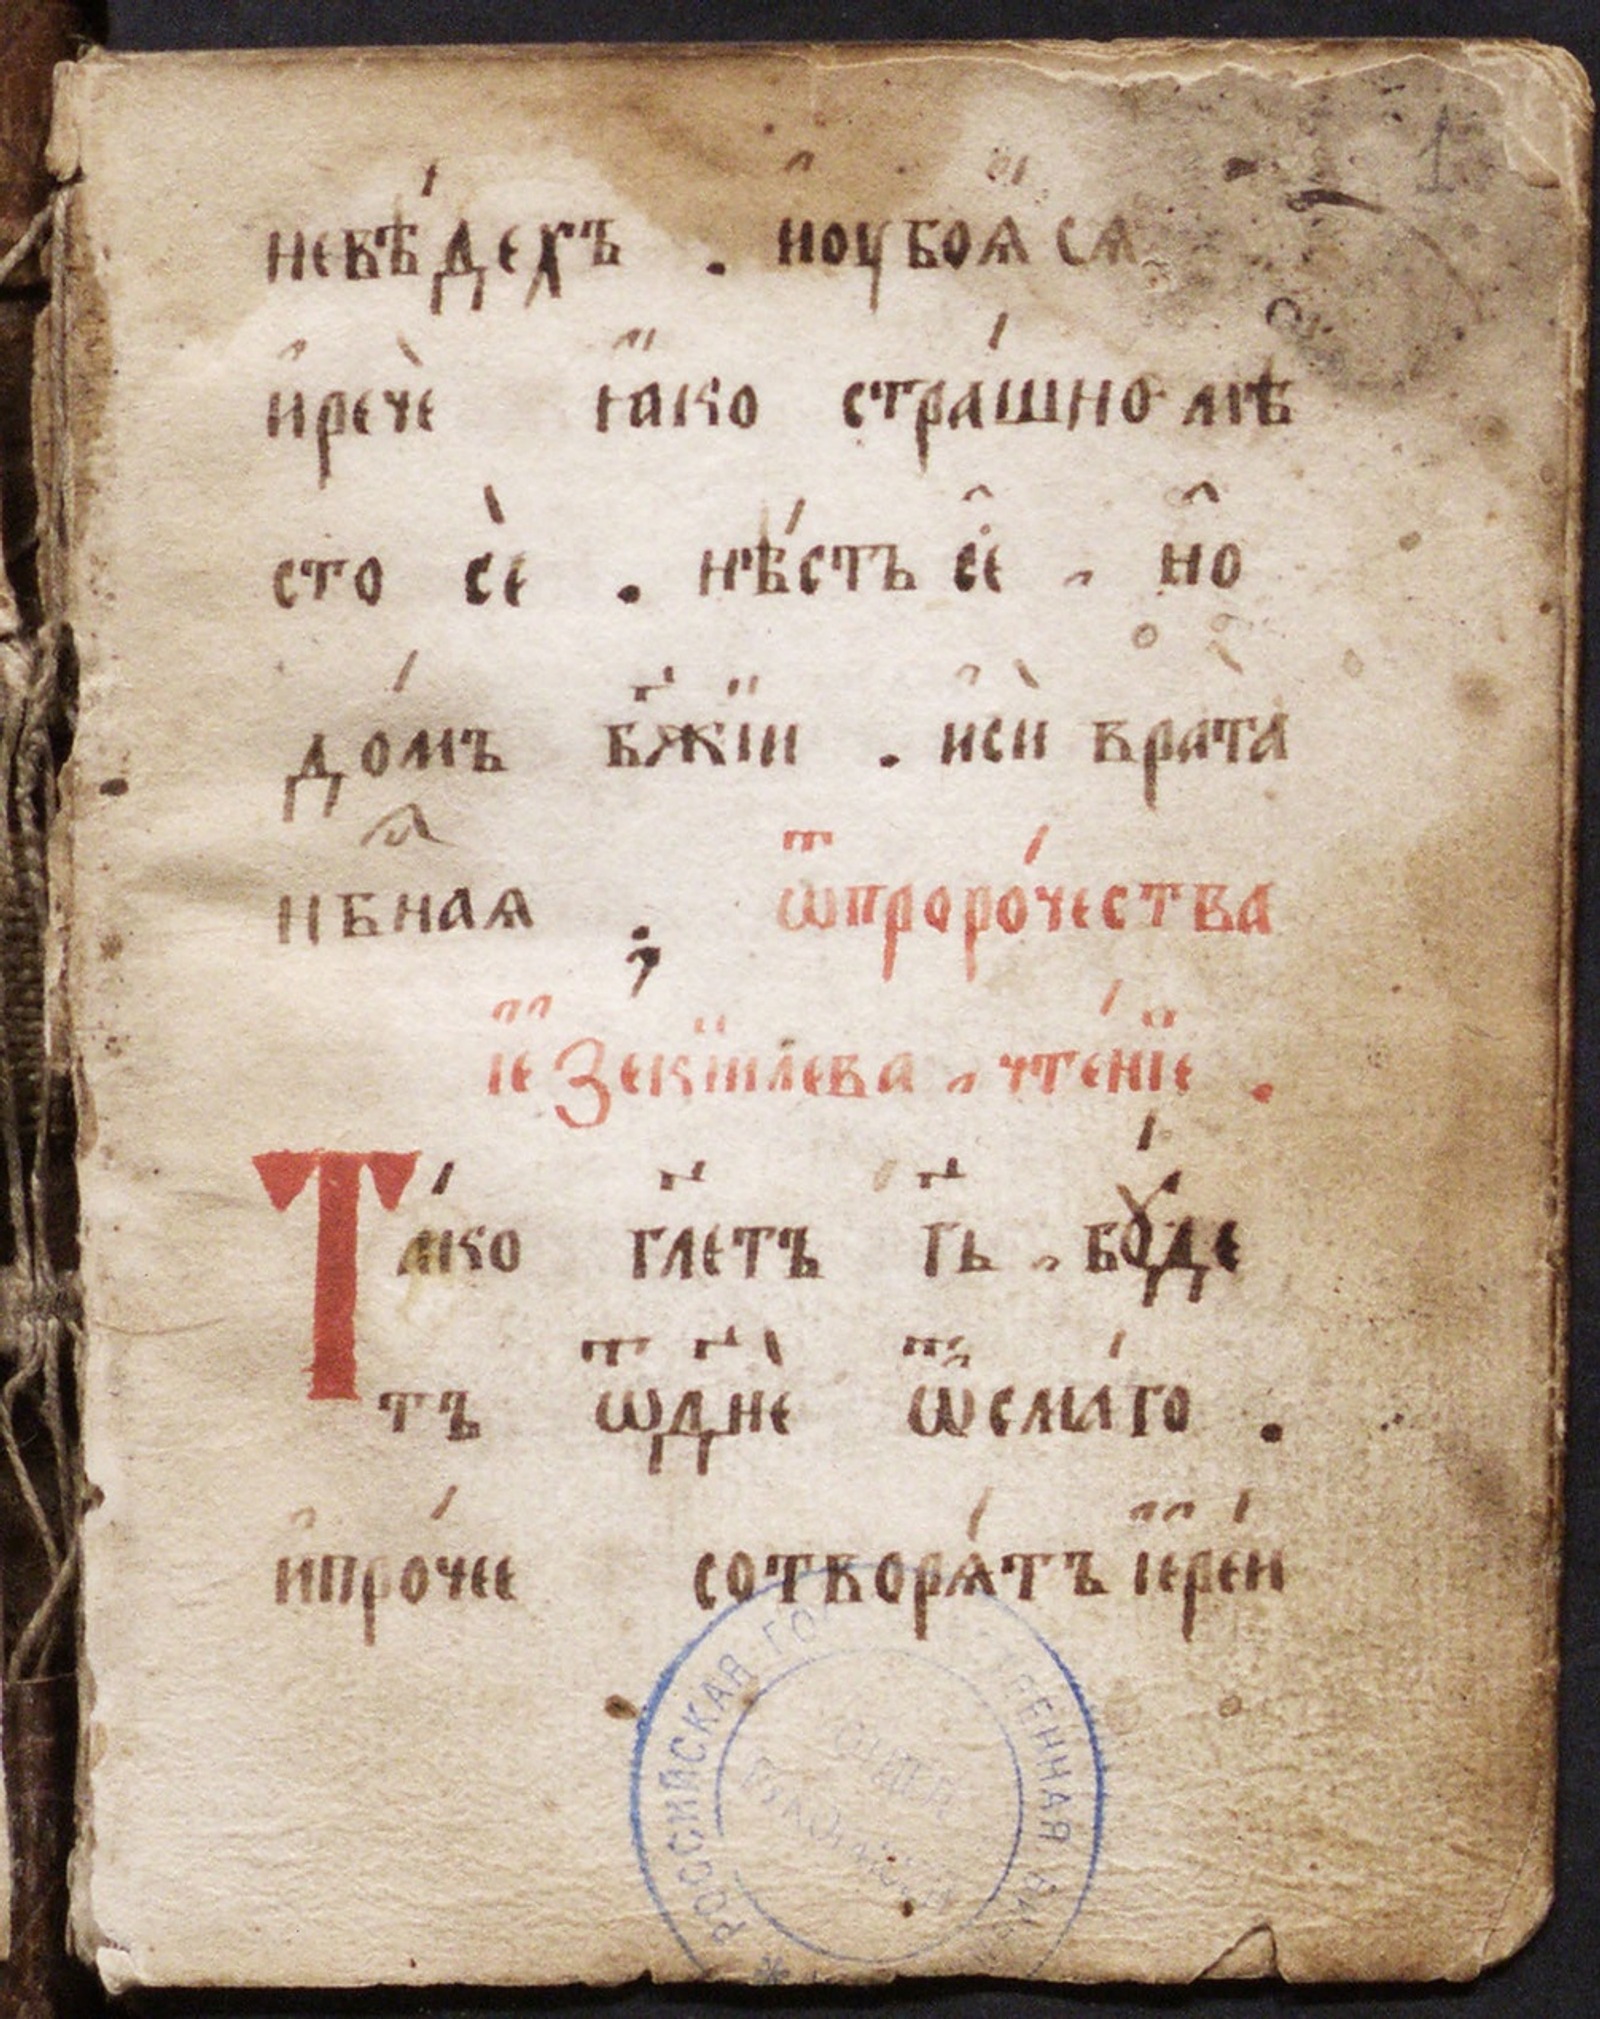 невѣ́дехъ . ноубоѧ̈сѧ
и҆речѐ ꙗ҆́ко стра́шно мѣ
сто сѐ . нѣ́сть сѐ , но̑
до́мъ бж҃їи . и҆сѝ врата̀
нб҃наѧ ; ѿпроро́чества
і҆езекїилева , чте́нїе .
Та́ко гл҃етъ гд҇ь , бꙋ́де
тъ ѿдн҃ѐ ѻ҆смаго .
и҆про́чее сотворѧ́тъ і҆ере́и
1
РОССИЙСКАЯ ГО СТВЕННАЯ БИ
ОТДЕЛ
РУКОПИСЕЙ